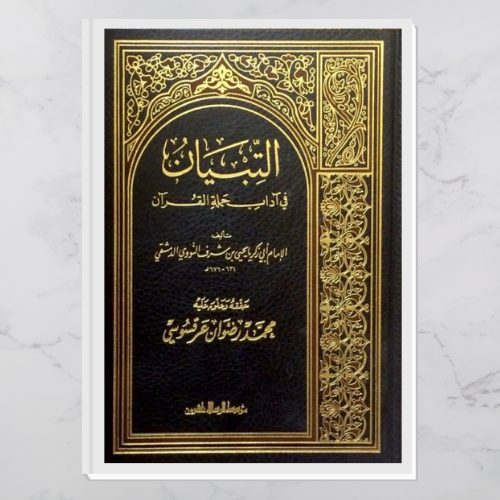 التِّبْيَانُ
في آدابِ حَمَلةِ القُرآن
تأليف
الإمام أبي زكريا يحيى بن شرف النووي الدمشقي
٦٣١-٦٧٦هـ
حَقّقهُ وَعَلّق عَليْه
محمّد رضوان عرقسوسي
مؤسسة الرسالة ناشرون